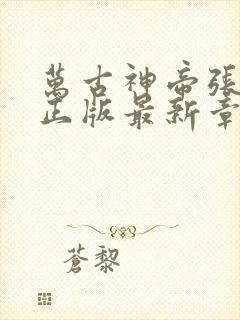 萬古神帝張
正版最新章
蒼黎